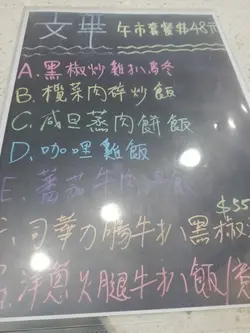 文華 午市套餐 48元
A. 黑椒炒雞扒烏冬
B. 欖菜肉碎炒飯
C. 咸旦蒸肉餅飯
D. 咖哩雞飯
E. 蕃茄牛肉飯
$55
司華力腸牛扒黑椒
洋蔥火腿牛扒飯